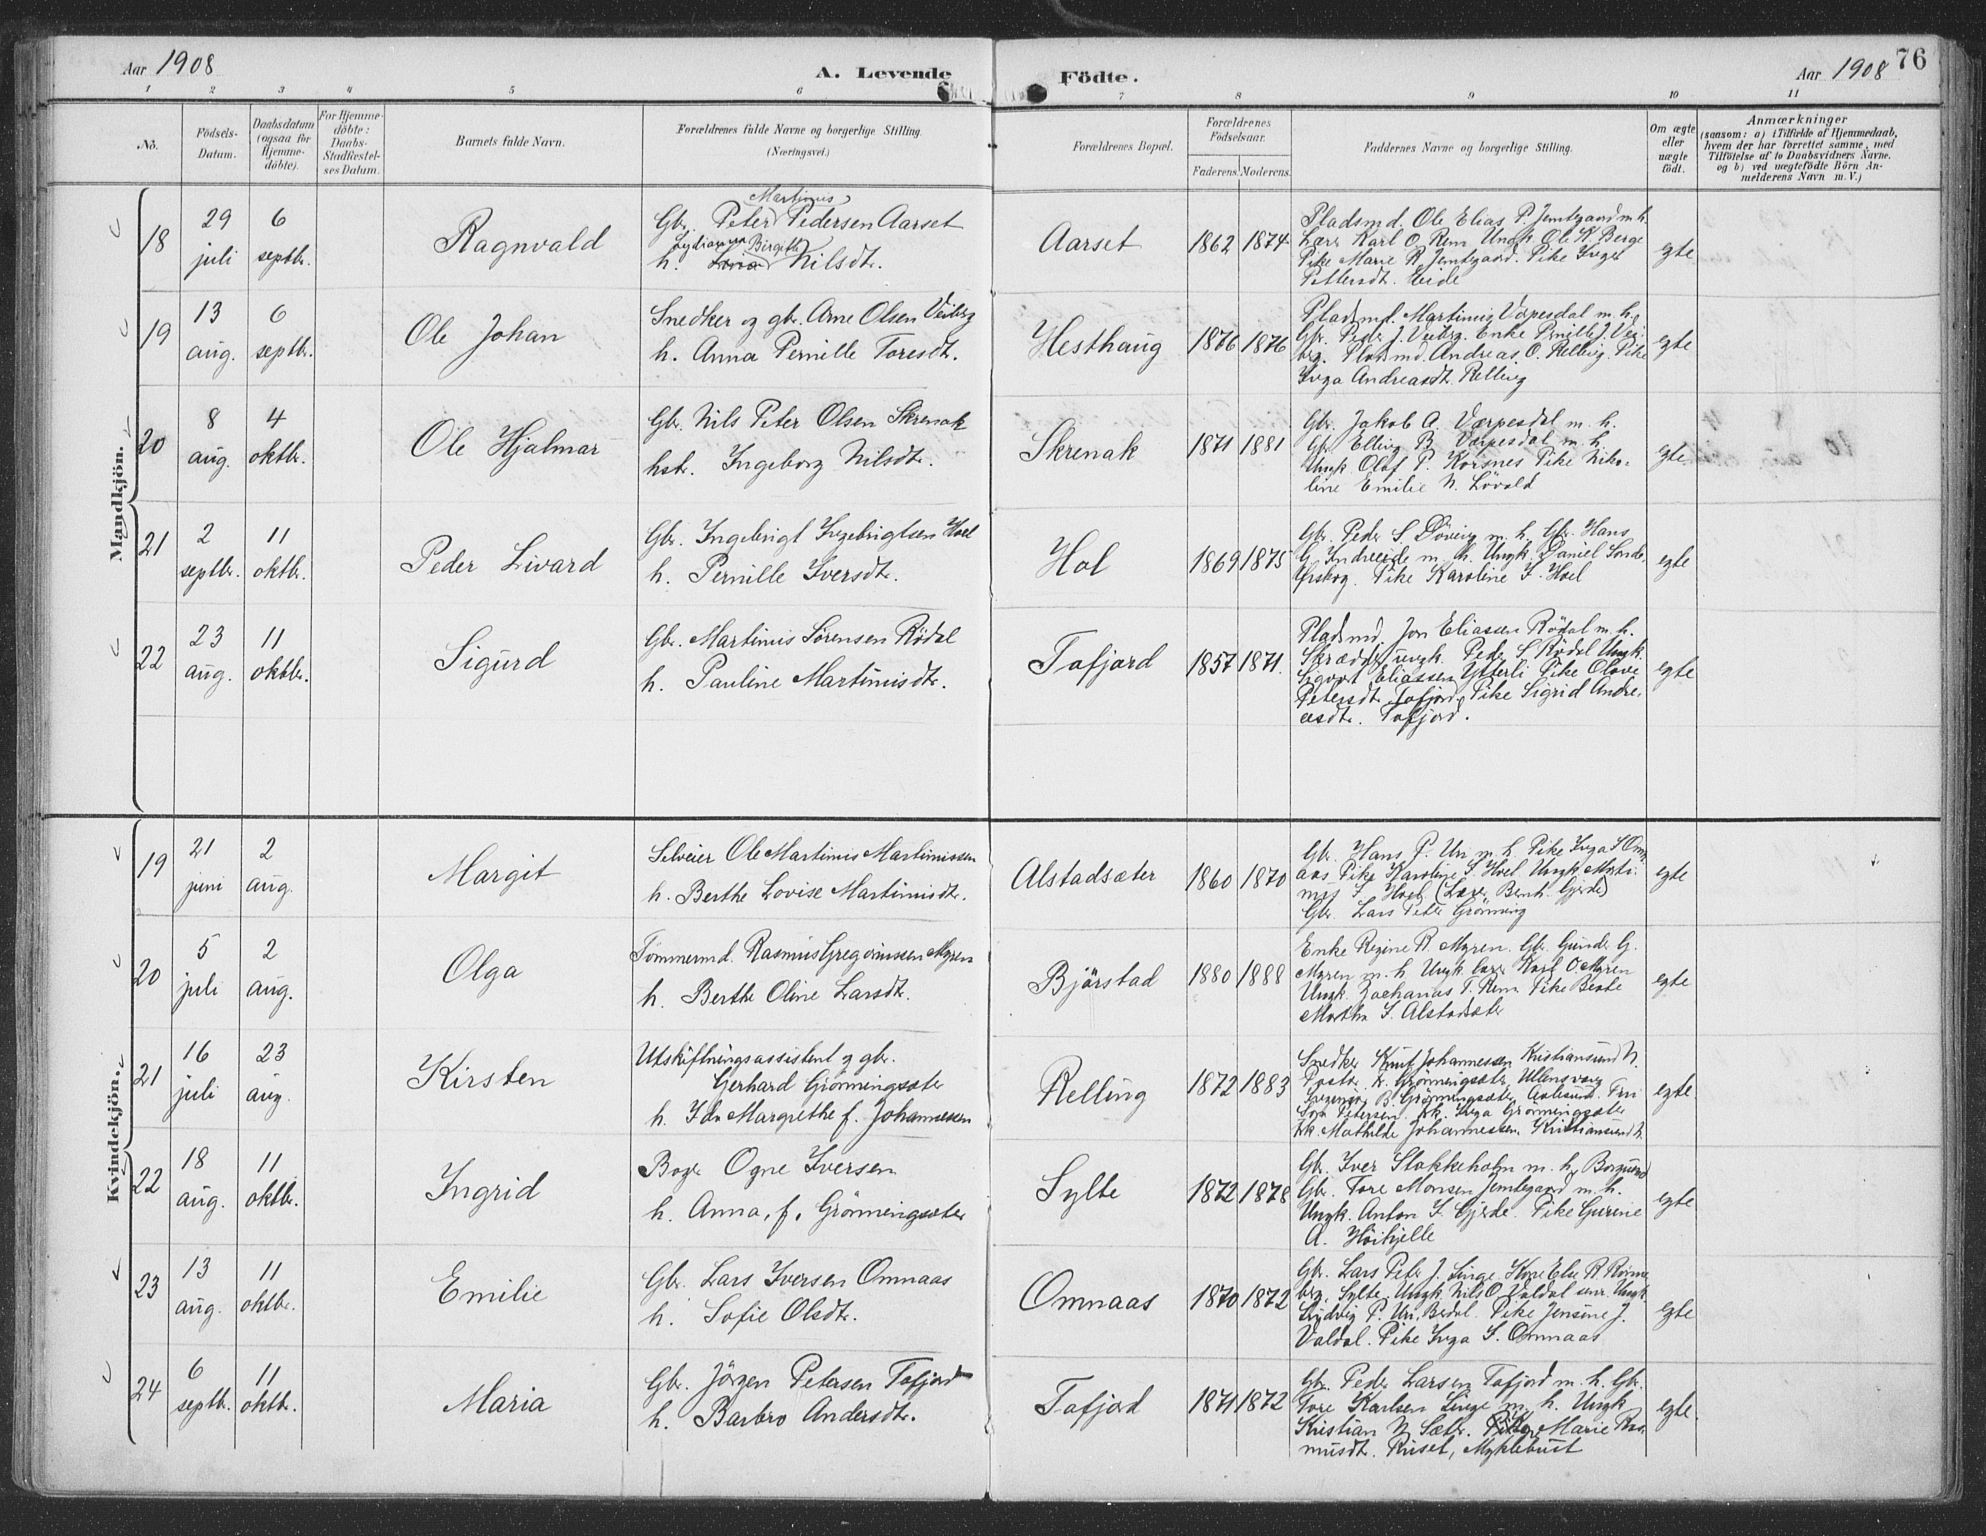 Aar 1908 A. Levende Födte. Aar 1908 76
1 2 3 4 5 6 7 8 9 10 11
No.
Födsels-
Datum.
Daabsdatum
(ogsaa for
Hjemme-
döbte).
For Hjemme-
döbte:
Daabs-
Stadfæstel-
ses Datum.
Barnets fulde Navn.
Forældrenes fulde Navne og borgerlige Stilling.
(Næringsvei.)
Forældrenes Bopæl.
Forældrenes
Födselsaar.
Faderens. Moderens.
Faddernes Navne og borgerlige Stilling.
Om ægte
eller
uægte
födt.
Anmærkninger
(saasom: a) i Tilfælde af Hjemmedaab,
hvem der har forrettet samme, med
Tilföielse af to Daabsvidners Navne.
og b) ved uægtefödte Börn An-
melderens Navn m. V.)
Mandkjön.
18
29
juli
6
septbr.
Ragnvald
Martinus
Gbr. Peter Pedersen Aarset
Birgith
h. Nilsdt.
Aarset
1862 1874
Pladsmd. Ole Elias P. Jemtegaard m. h.
Lærer Karl O. Rem Ungk. Ole K. Berge
Pike Marie R. Jemtegaard. Pike Inger
Pettersdt. Eide
egte
19
13
aug.
6
septbr.
Ole Johan
Snedker og gbr. Arne Olsen Veiberg
h. Anna Pernille Toresdt.
Hesthaug
1876 1876
Pladsmd. Martinus Værpesdal m. h.
Gbr. Peder J. Veiberg. Enke Pernille J. Vei-
berg. Pladsmd. Andreas O. Relling. Pike
Inga Andreasdt. Relling
egte
20
8
aug.
4
oktbr.
Ole Hjalmar
Gbr. Nils Peter Olsen Skrenak
hst. Ingeborg Nilsdt.
Skrenak
1871 1881
Gbr. Jakob A. Værpesdal m. h.
Gbr. Elling B. Værpesdal m. h.
Ungk. Olaf P. Korsnes Pike Niko-
line Emilie N. Løvold
egte
21
2
septbr.
11
oktbr.
Peder Livard
Gbr. Ingebrigt Ingebrigtsen Hoel
h. Pernille Iversdt.
Hol
1869 1875
Gbr. Peder S. Döving m. h. Gbr. Hans
G. Indreeide m. h. Ungk. Daniel
Ørskog. Pike Karoline I. Hoel
egte
22
23
aug.
11
oktbr.
Sigurd
Gbr. Martinus Sörensen Rödal
h. Pauline Martinusdt.
Tafjord
1857 1871.
Pladsmd. Jon Eliassen Rödal m. h.
Skrædder ungk. Peder S. Rödal Ungk.
Sigvart Eliassen Ytterli Pike Olave
Petersdt. Tafjord, Pike Sigrid Andre-
asdt. Tafjord.
egte
Kvindekjön.
19
21
juni
2
aug.
Margit
Selveier Ole Martinus Martinussen
h. Berthe Lovise Martinusdt.
Alstadsæter
1860 1870
Gbr. Hans P. Uri m. h. Pike Inga S. Om-
aas Pike Karoline I. Hoel Ungk. Marti-
nus I. Hoel (Lærer Bernt Gjerde)
Gbr. Lars Peter Grönning
egte
20
5
juli
2
aug.
Olga
Tömmermd. Rasmus Gregoriussen Myren
h. Berthe Oline Larsdt.
Björstad
1880 1888
Enke Regine R. Myren. Gbr. Gunder G.
Myren m. h. Ungk. lærer Karl O. Myren
Ungk. Zacharias T. Rem Pike Berte
Martha I. Alstadsæter
egte
21
16
juli
23
aug.
Kirsten
Utskiftningsassistent og gbr.
Gerhard Grönningsæter
h. Ida Margrethe f. Johannessen
Relling
1872 1883
Snedker Knut Johannessen Kristiansund N.
Pastor Grönningsæter, Ullensvang
Ingeniör B. Grönningsæter Aalesund. Fru
Petersen. frk. Inga Grönningsæter
frk. Mathilde Johannessen, Kristiansund N.
egte
22
18
aug.
11
oktbr.
Ingrid
Ogne Iversen
h. Anna, f. Grönningsæter
Sylte
1872 1878
Gbr. Iver Stokkeholm m. h, Borgund
Gbr. Tore Monsen Jemtegaard m. h.
Ungk. Anton I. Gjerde. Pike Gurine
A. Höihjelle
egte
23
13
aug.
11
oktbr.
Emilie
Gbr. Lars Iversen Omnaas
h. Sofie Olsdt.
Omnaas
1870 1872
Gbr. Lars Peter J. Linge. Else R. Rönne-
berg, Sylte. Ungk. Nils O. Valdal senr. Ungk.
Ludvig P. Uri, Pike Jensine J.
Valdal. Pike Inga S. Omnaas
egte
24
6
septbr.
11
oktbr.
Maria
Gbr. Jörgen Petersen Tafjord
h. Barbro Andersdt.
Tafjord
1871 1872
Gbr. Peder Larsen Tafjord m. h. Gbr.
Tore Karlsen Linge m. h. Ungk.
Kristian N. Sæter. Pike Marie Ras-
musdt. Ruset, Myklebust
egte.